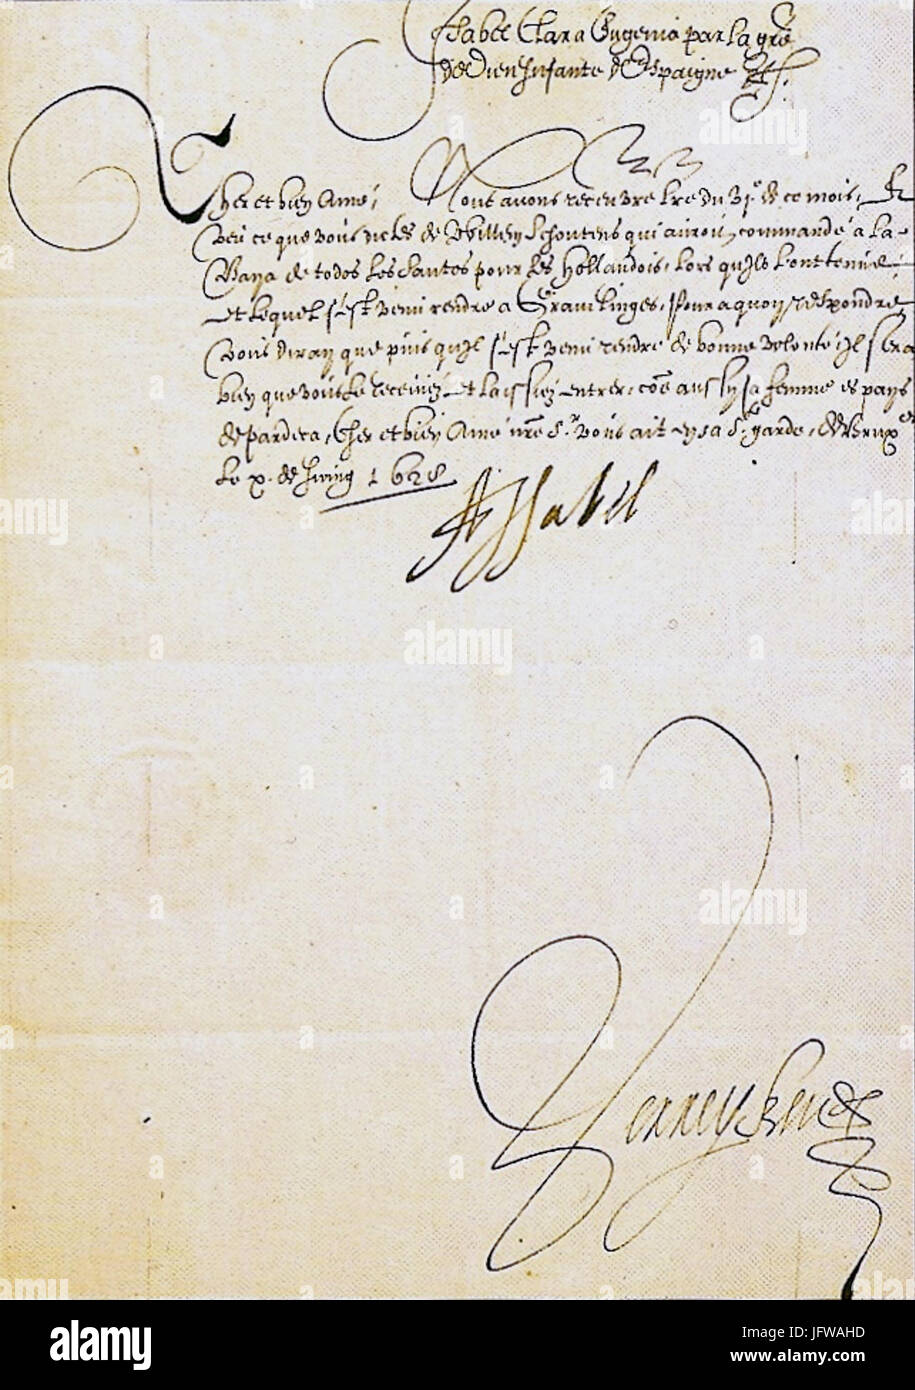 Isabel Clara Eugenia par la grce
de Dieu Infante d'Espaigne
Cher et bien Amé, Nous avons receu vre lre du vje de ce mois, Et
veu ce que vous dictes de Willem Schoutens qui auroit commandé a la
Baya de todos los Santos pour les Hollandois, lors qu'ils l'ont tenue
et lequel s'est venu rendre a Gravelinges, Pour a quoy respondre
vous diray que puis qu'il s'est venu rendre de bonne volonte, il sera
bien que vous le receviez et laissiez entrer, coe aussy sa femme es pays
de pardeca, Cher et bien Amé nre Sr vous ait en sa Ste garde, de Brux
le x. de 1628
A Isabel
alamy
JFWAHD
www.alamy.com